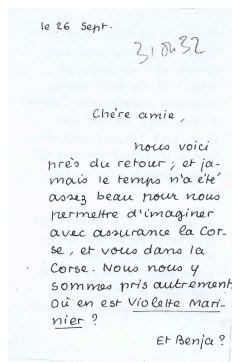 le 26 Sept.
31 04 32
Chère amie,
nous voici
près du retour ; et ja-
mais le temps n'a été
assez beau pour nous
permettre d'imaginer
avec assurance la Cor-
se, et vous dans la
Corse. Nous nous y
sommes pris autrement.
Où en est Violette Mari-
nier ?
Et Benja ?